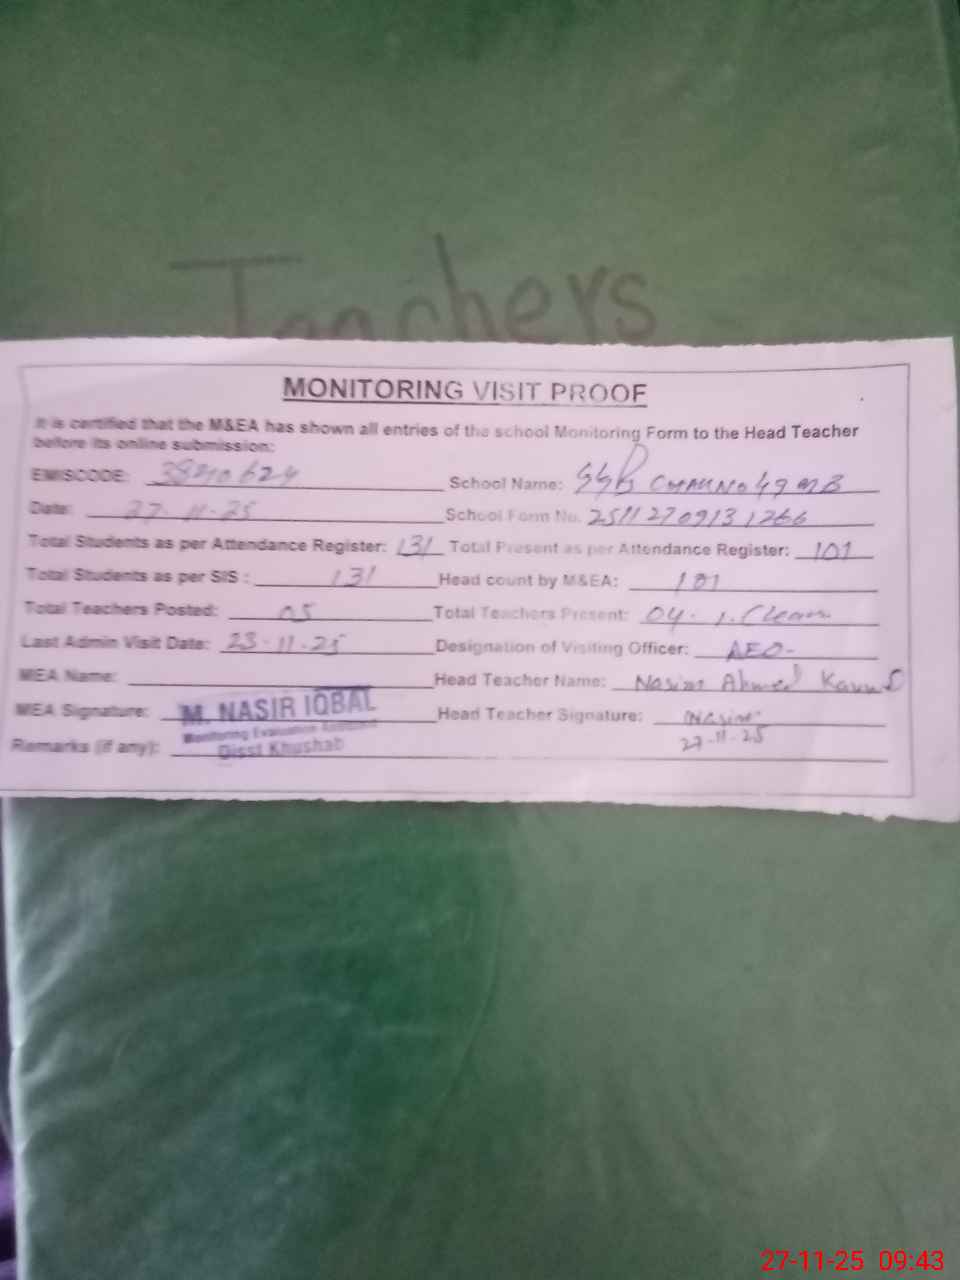 Teachers
MONITORING VISIT PROOF
It is certified that the M&EA has shown all entries of the school Monitoring Form to the Head Teacher
before its online submission:
EMISCODE: School Name: CHAK NO 49 MB
Date: 27-11-25 School Form No. 2511270913 1266
Total Students as per Attendance Register: 131 Total Present as per Attendance Register: 101
Total Students as per SIS : 131 Head count by M&EA: 101
Total Teachers Posted: 05 Total Teachers Present: 04
Last Admin Visit Date: 23-11-25 Designation of Visiting Officer: AEO-
MEA Name: Head Teacher Name: Ahmed
MEA Signature: M. NASIR IQBAL Head Teacher Signature:
Monitoring Evaluation Assistant
Remarks (if any): Disst Khushab 27-11-25
27-11-25 09:43